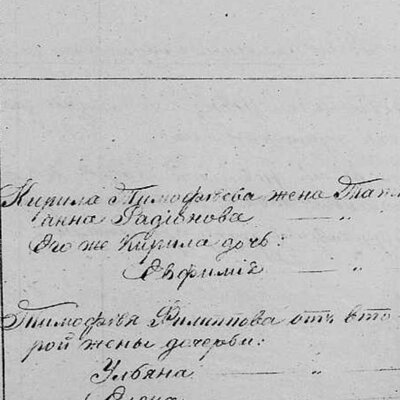 Кирила Тимофѣева жена Тать
анна Радіонова — "
Его же Кирила дочь:
Евфимія — "
Тимофѣя Филиппова отъ вто
рой жены дочери:
Ульяна — "
Елена